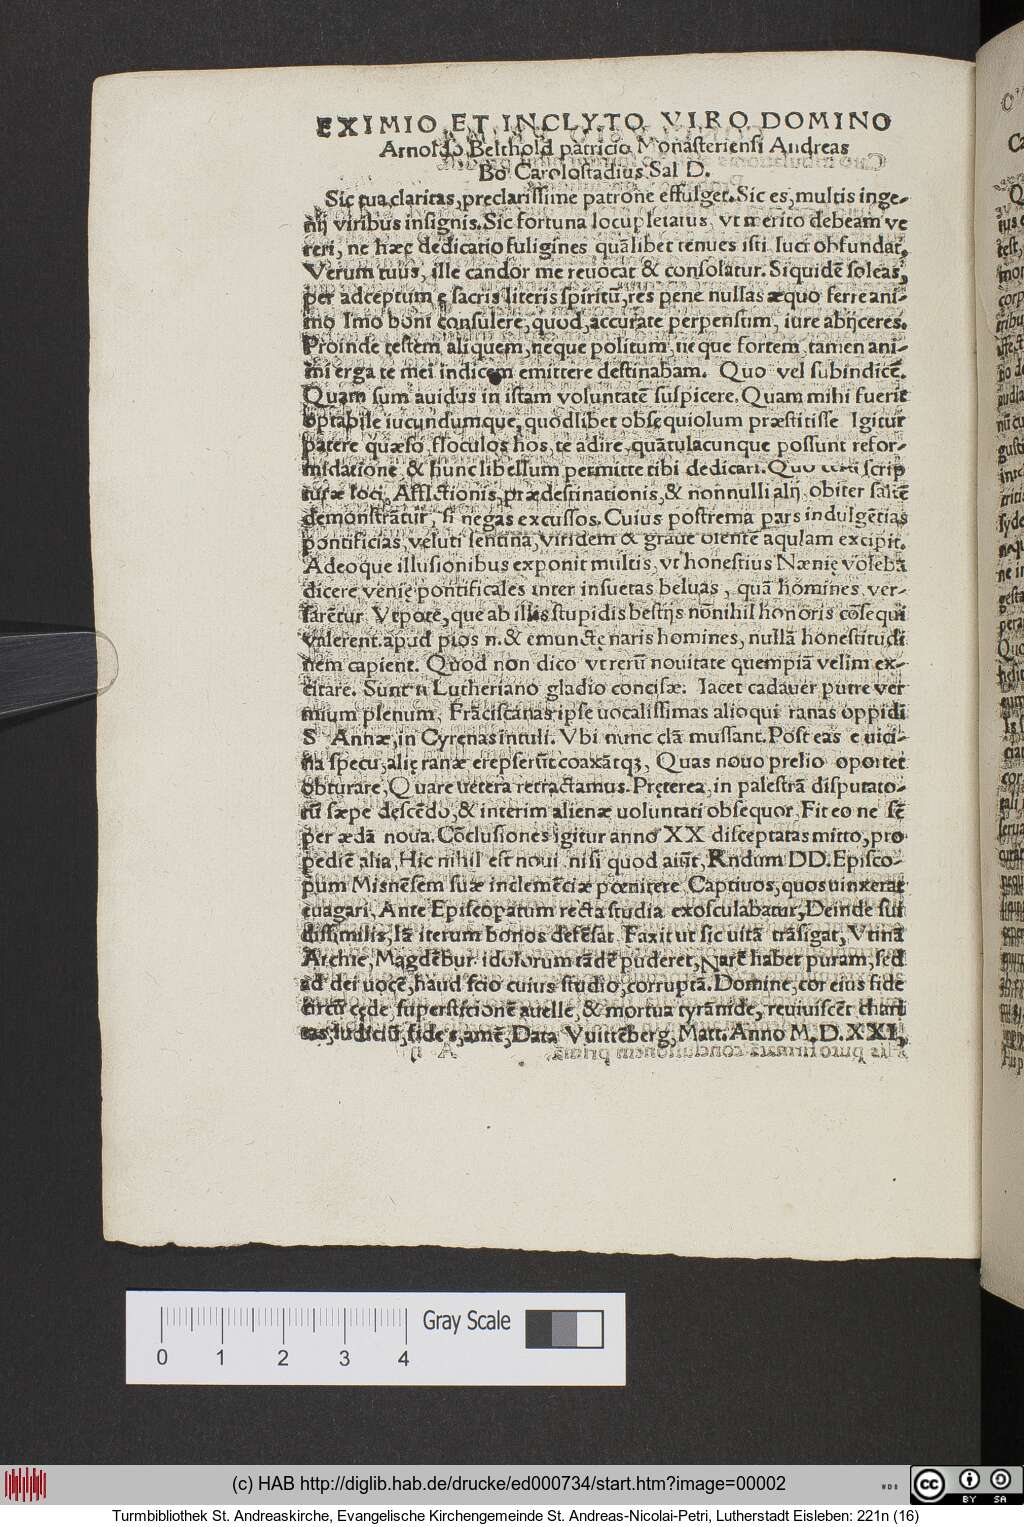 EXIMIO ET INCLYTO VIRO DOMINO
Arnoldo Belthold patricio Monasteriensi Andreas
Bo Carolostadius Sal D.
Sic tua claritas, preclarissime patrone effulget. Sic es, multis inge-
nij viribus insignis. Sic fortuna locupletatus, vt merito debeam ve
reri, ne hæc dedicatio fuligines quālibet tenues isti luci obfundat.
Verum tuus, ille candor me reuocat & consolatur. Siquidē soleas,
per adceptum e sacris literis spiritū, res pene nullas æquo ferre ani-
mo Imo boni consulere, quod, accurate perpensum, iure abijceres.
Proinde testem aliquem, neque politum neque fortem tamen ani-
mi erga te mei indicem emittere destinabam. Quo vel subindicē.
Quam sum auidus in istam voluntatē suspicere. Quam mihi fuerit
optabile iucundumque, quodlibet obsequiolum præstitisse Igitur
patere quæso flosculos hos, te adire, quātulacunque possunt refor-
midatione & hunc libellum permitte tibi dedicari. Quo certi scrip
turæ loci, Afflictionis, prædestinationis, & nonnulli alij obiter saltē
demonstrātur, si negas excussos. Cuius postrema pars indulgētias
pontificias, veluti sentina, viridem & graue olentē aquam excipit.
Adeoque illusionibus exponit multis, vt honestius Nænię volebā
dicere venię pontificales inter insuetas beluas, quā homines ver-
sarētur Vtpote, que ab illis stupidis bestijs nōnihil honoris cōsequi
valerent. apud pios n. & emunctę naris homines, nullā honestitudi
nem capient. Quod non dico vt rerū nouitate quempiā velim ex-
citare. Sunt n Lutheriano gladio concisæ. Iacet cadauer putre ver
mium plenum, Frāciscanas ipse uocalissimas alioqui ranas oppidi
S Annæ, in Cyrenas intuli. Vbi nunc clā mussant. Post eas e uici-
na specu, alię ranæ erepserūt coaxātqȝ, Quas nouo prelio oportet
obturare, Quare uetera retractamus. Pręterea, in palestrā disputato-
rū sæpe descēdo, & interim alienæ uoluntati obsequor, Fit eo ne sē
per ædā noua. Cōclusiones igitur anno XX disceptatas mitto, pro
pediē alia, Hic nihil est noui nisi quod aiūt, Rndum DD. Episco-
pum Misnēsem suæ inclemēciæ pœnitere Captiuos, quos uinxerat
euagari, Ante Episcopatum recta studia exosculabatur, Deinde sui
dissimilis, Iā iterum bonos defēsat Faxit ut sic uitā trāsigat, Vtinā
Archie, Magdēbur idolorum tādē puderet, Narē habet puram, sed
ad dei uocē, haud scio cuius studio, corruptā. Domine, cor eius fide
circū cęde, superstitionē auelle, & mortua tyrānide, reuiuiscēt chari
tas, Iudiciū, fides, amē, Data Vuittēberg, Matt. Anno M.D.XXI,
Gray Scale
0 1 2 3 4
(c) HAB http://diglib.hab.de/drucke/ed000734/start.htm?image=00002
cc BY SA
Turmbibliothek St. Andreaskirche, Evangelische Kirchengemeinde St. Andreas-Nicolai-Petri, Lutherstadt Eisleben: 221n (16)